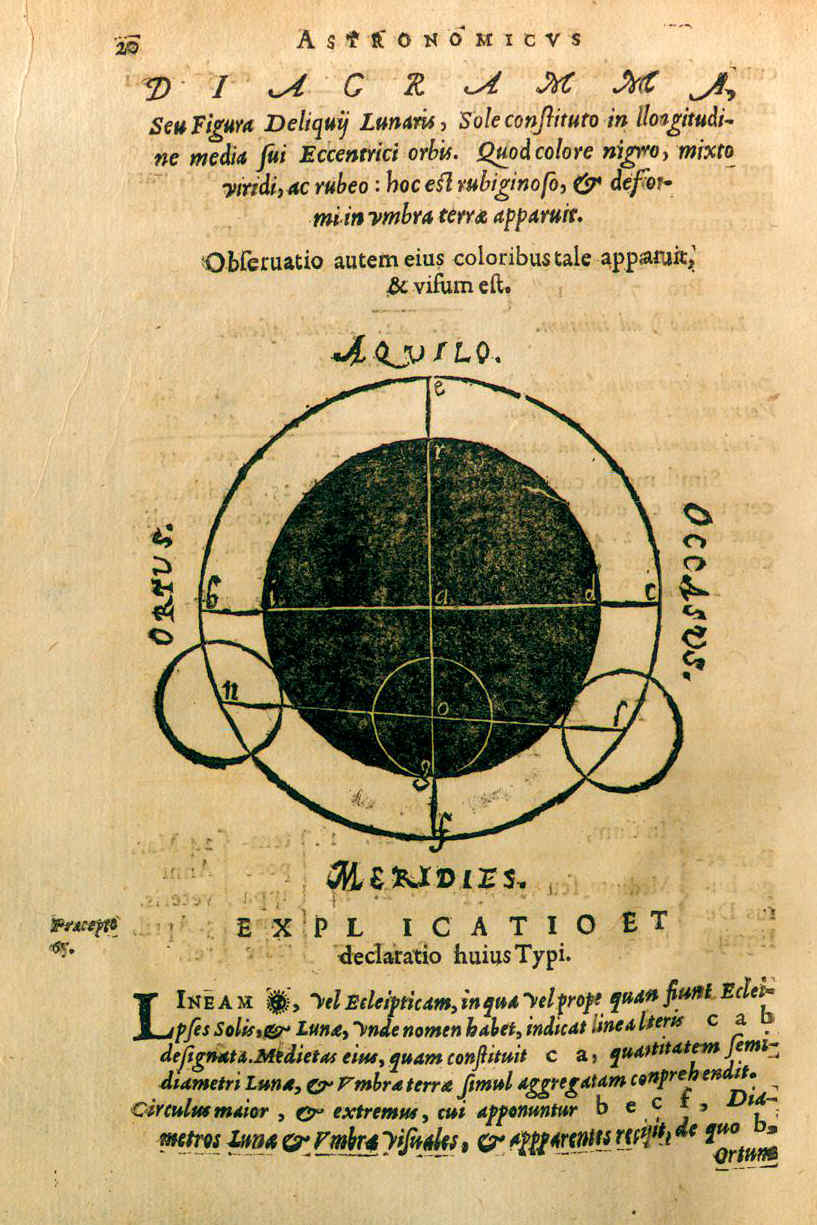 20 ASTRONOMICVS
DIAGRAMMA,
Seu Figura Deliquij Lunaris, Sole conſtituto in llongitudi-
ne media ſui Eccentrici orbis. Quod colore nigro, mixto
viridi, ac rubeo : hoc eſt rubiginoſo, & defor-
mi in vmbra terræ apparuit.
Obſeruatio autem eius coloribus tale apparuit,
& viſum eſt.
AQVILO.
e
r
ORTVS.
OCCASVS.
b i a d c
n o ſ
g
f
MERIDIES.
EXPLICATIO ET
declaratio huius Typi.
LINEAM , vel Ecleipticam, in qua vel prope quan fiunt Eclei-
pſes Solis, & Lunæ, vnde nomen habet, indicat linea lteris c a b
deſignata. Medietas eius, quam conſtituit c a, quantitatem ſemi-
diametri Lunæ, & Vmbra terræ ſimul aggregatam conprehendit.
Circulus maior , & extremus, cui apponuntur b e c f , Dia-
metros Lunæ & Vmbra viſuales, & appparentes recipit, de quo b,
Ortum